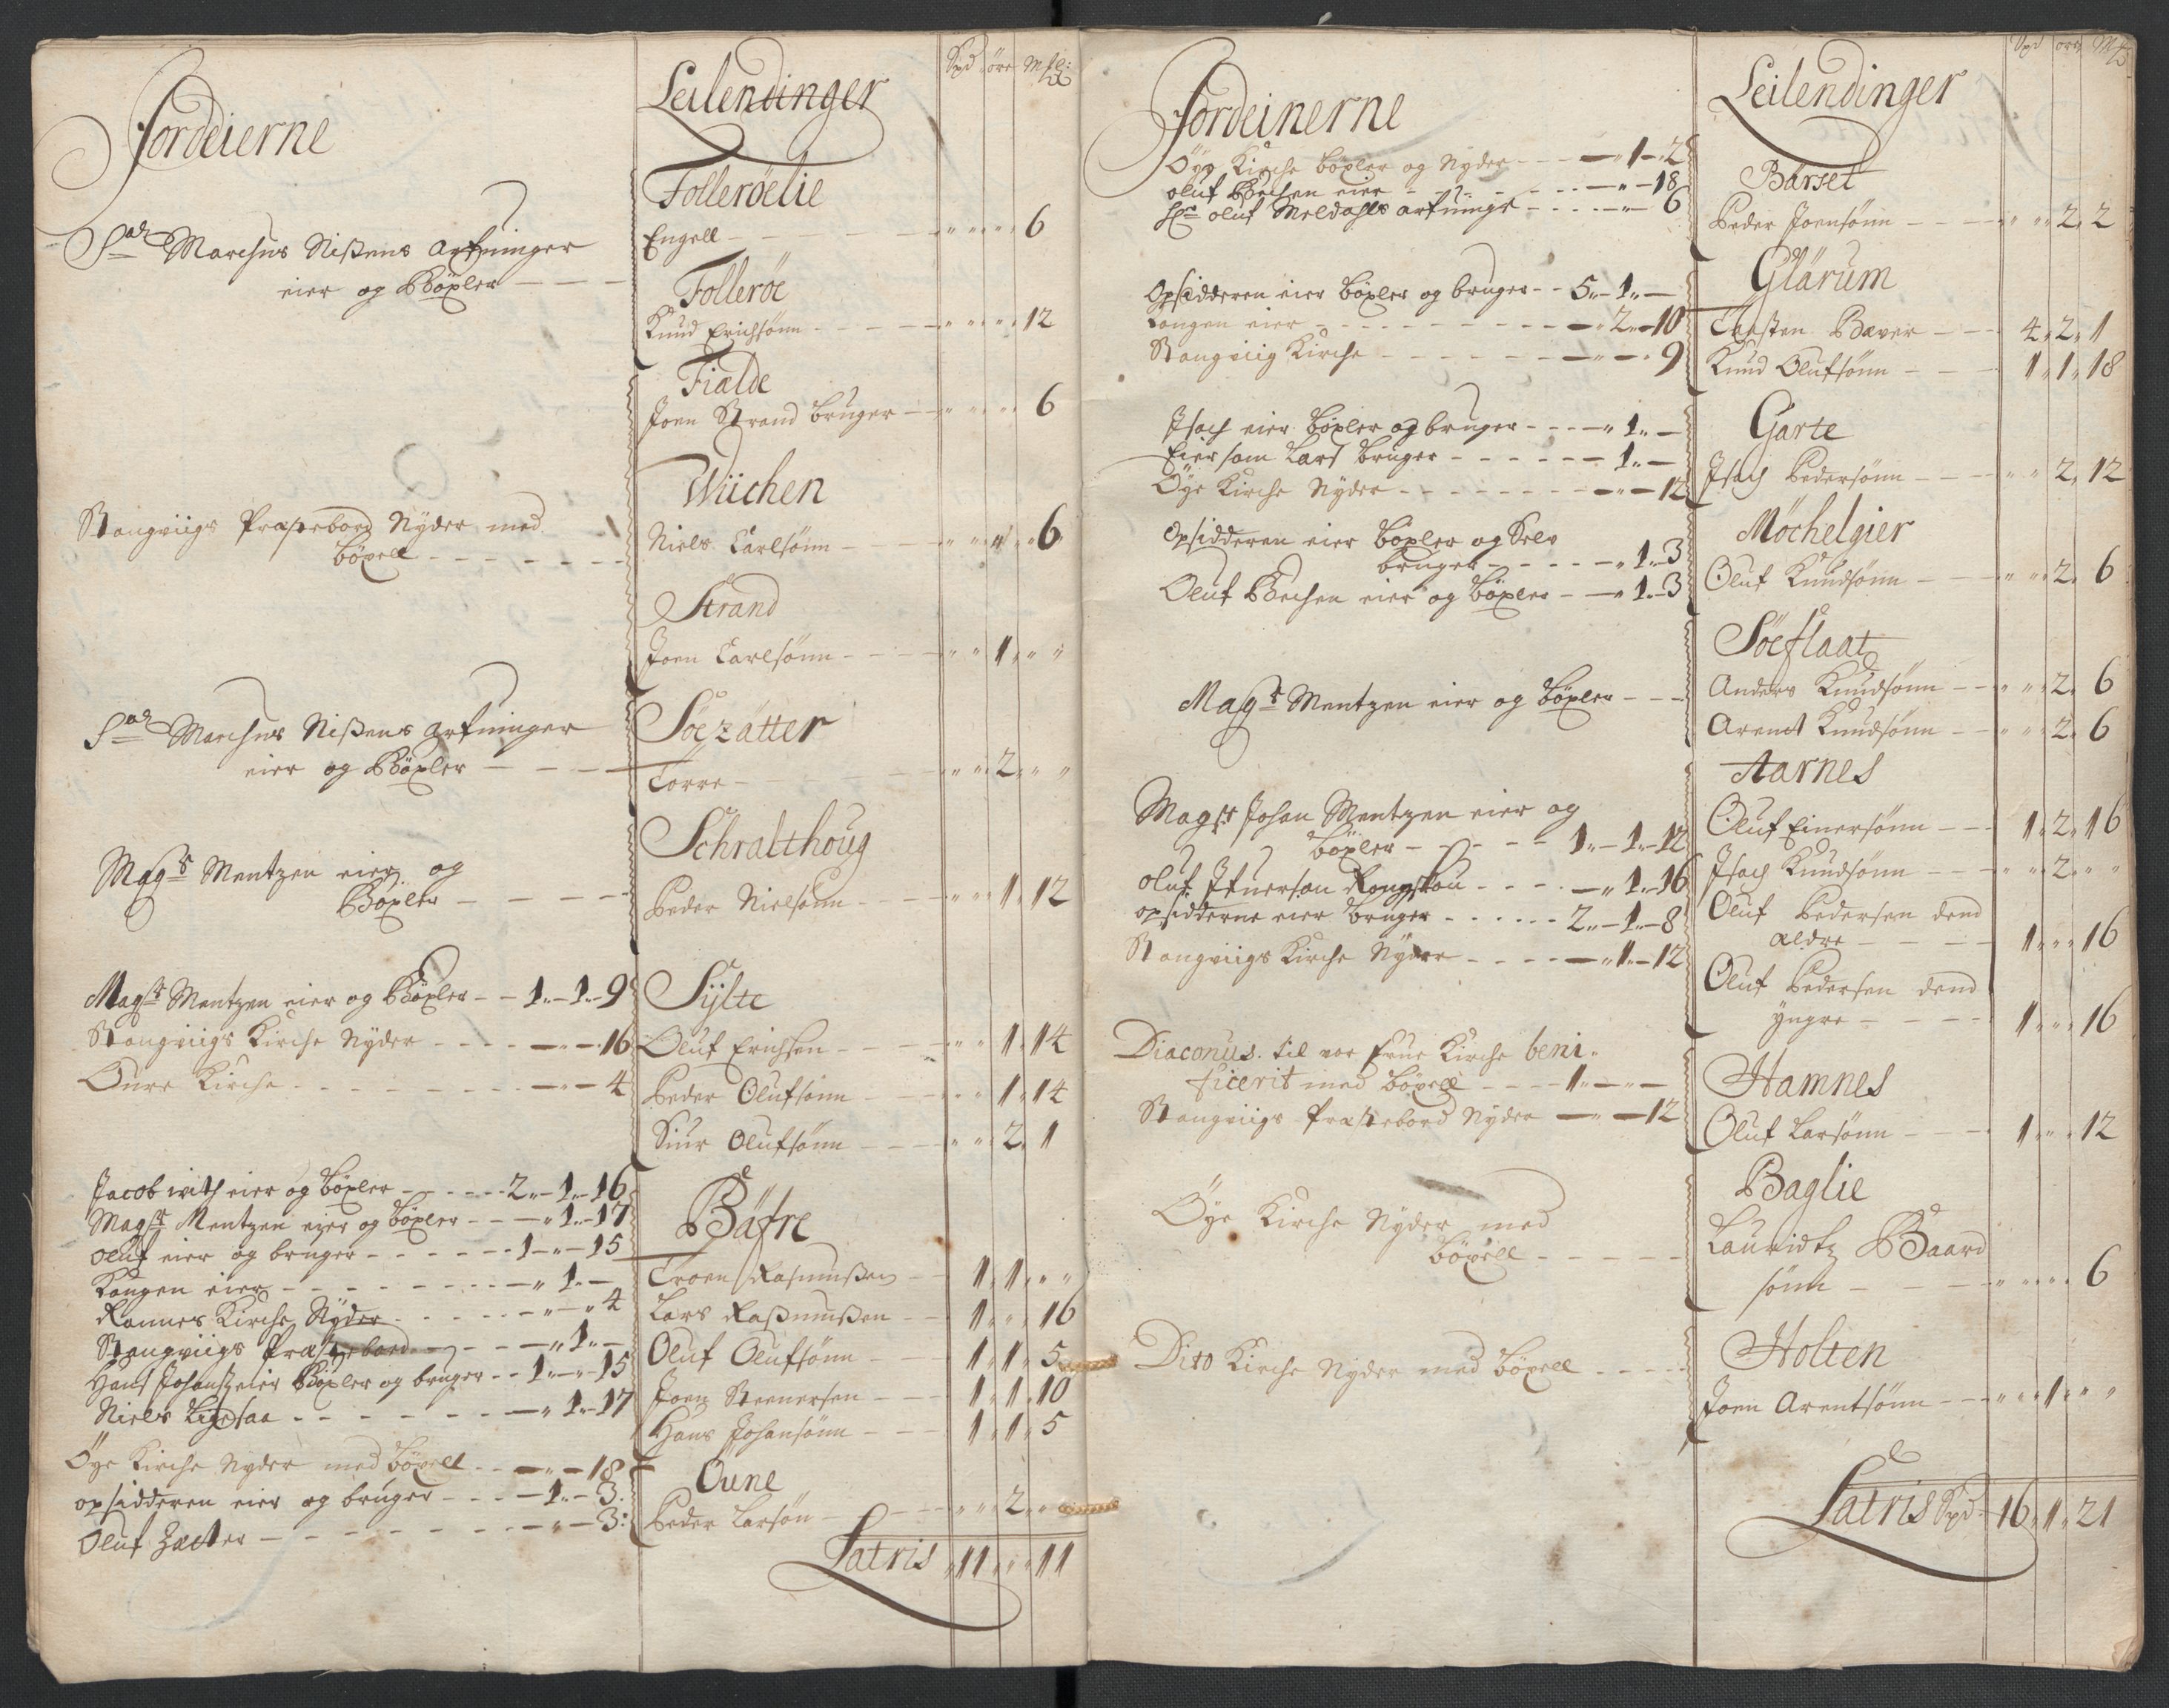 Jordeierne
Sal Marchus Nissens Arfuinger
eier og Böxler
Stangviigs Præstebord Nyder med
böxell
Sal Marchus Nissens Arfuinger
eier og Böxler
Magr Mentzen eier og
Böxler
Magstr Mentzen eier og Böxler - - 1 - 1 - 9
Stangviigs Kirche Nyder - - - - 16
Öure Kirche - - - - 4
Jacob with eier og böxler - - 2 - 1 - 16
Magstr Mentzen eier og böxler - - 1 - 17
Oluf eier og bruger - - 1 - " - 15
Kongen eier - - " 1 -
Romnes Kirche Nyder - - " - " 4
Stangviigs Præstebord - - " 1 -
Hans Johansz eier Böxler og bruger - - 1 - " - 15
Niels Ligesaa - - - " 1 - 17
Öye Kirche Nyder med böxell - - - 18
opsidderen eier og bruger - - - 1 - 3
Oluf Zætter - - - " - 3
Leilendinger
Spd öre Mk
Folleröelie
Engell - - " " " 6
Folleröe
Knud Erichsönn - - " " " 12
Fialde
Joen Strand bruger - " " " 6
Wiichen
Niels Carlsönn - " " " 6
Strand
Joen Carlsönn - " " 1 " "
Söezätter
Torre - " " 2 " "
Schralthoug
Peder Nielsönn - " " 1 " 12
Sylte
Oluf Erichsen - " " 1 " 14
Peder Olufsönn - " " 1 " 14
Siur Olufsönn - " " 2 " 1
Bäfre
Troen Rasmussen - 1 " 1 " "
Lars Rassmussen - 1 " " 16
Oluf Olufsönn - 1 " 1 " 5
Joen Steenersen - 1 " 1 " 10
Hans Johansönn - 1 " 1 " 5
Öune
Peder Larsön - " " 2 " "
Latris " 11 " " 11
Jordeinerne
Öye Kirche böxler og Nyder - - - " 1 - 2
oluf Bechen eier - - - " - 18
Hr oluf Meldahls arfuinge - - - 6
Opsidderen eier böxler og bruger - - 5 " - 1 " -
Kongen eier - - - 2 " - 10
Stangviig Kirche - - - 9
Isach eier böxler og bruger - - - " 1 " -
Eier som Lars bruger - - - 1 " -
Öye Kirche Nyder - - - 12
Opsidderen eier böxler og Selv
bruger - - - " 1 " - 3
Oluf Bechen eier og böxler - - " 1 " - 3
Magr Mentzen eier og böxler - - -
Magstr Johan Mentzen eier og
böxler - - 1 " - 1 " - 12
oluf - - " 1 " - 16
opsidderne eier bruger - - 2 " - 1 " - 8
Stangviigs Kirche Nyder - - - " 1 " - 12
Diaconus til vor frue Kirche beni-
ficerit med böxell - - - 1 " - " -
Stangviigs Præstebord Nyder - " - 12
Öye Kirche Nyder med
böxell - - -
Dito Kirche Nyder med böxell - - -
Leilendinger
Spd ore Mk
Bärset
Peder Joensönn - " " 2 " 2
Glärum
Carsten Bæver - 4 " 2 " 1
Knud Olufsönn - 1 " 1 " 18
Garte
Isach Pedersönn - " " 2 " 12
Möchelgier
Oluf Knudsönn - " " 2 " 6
Söeflaat
Anders Knudsönn - " " 2 " 6
Arendt Knudsönn - " " 2 " 6
Aarnes
Oluf Einersönn - 1 " 2 " 16
Isach Knudsönn - " " 2 " "
Oluf Pedersen dend
ældre - 1 " " 16
Oluf Pedersen dend
yngre - 1 " " 16
Hamnes
Oluf Larsönn - 1 " " 12
Baglie
Lauridtz Baard
sönn - " " " 6
Holten
Joen Arentsönn - " " 1 " "
Latris Spd 16 " 1 " 21